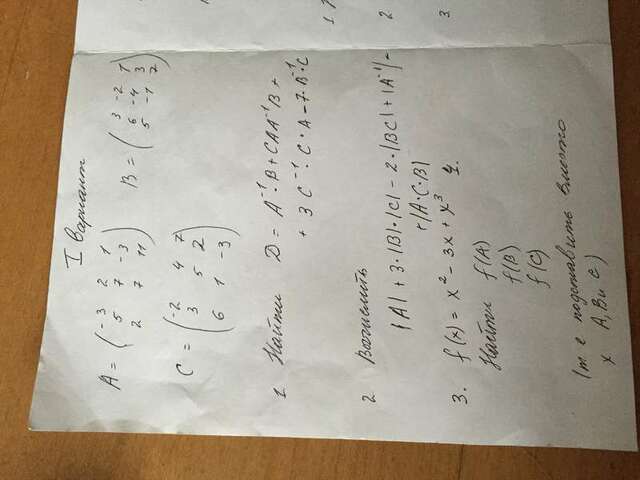 I вариант
A = ( -3 2 1
5 7 -3
2 7 11 )
B = ( 3 -2 1
6 -4 3
5 -1 7 )
C = ( -2 4 7
3 5 2
6 1 -3 )
1 Найти D = A⁻¹·B + CAA⁻¹B +
+ 3 C⁻¹·C·A - 7·B⁻¹·C
2 Вычислить
|A| + 3·|B|·|C| - 2·|BC| + |A⁻¹| -
+|A·C·B|
3. f(x) = x² - 3x + x³
Найти f(A)
f(B)
f(C)
(т е подставить вместо
x A, B и C)
1
2
3.